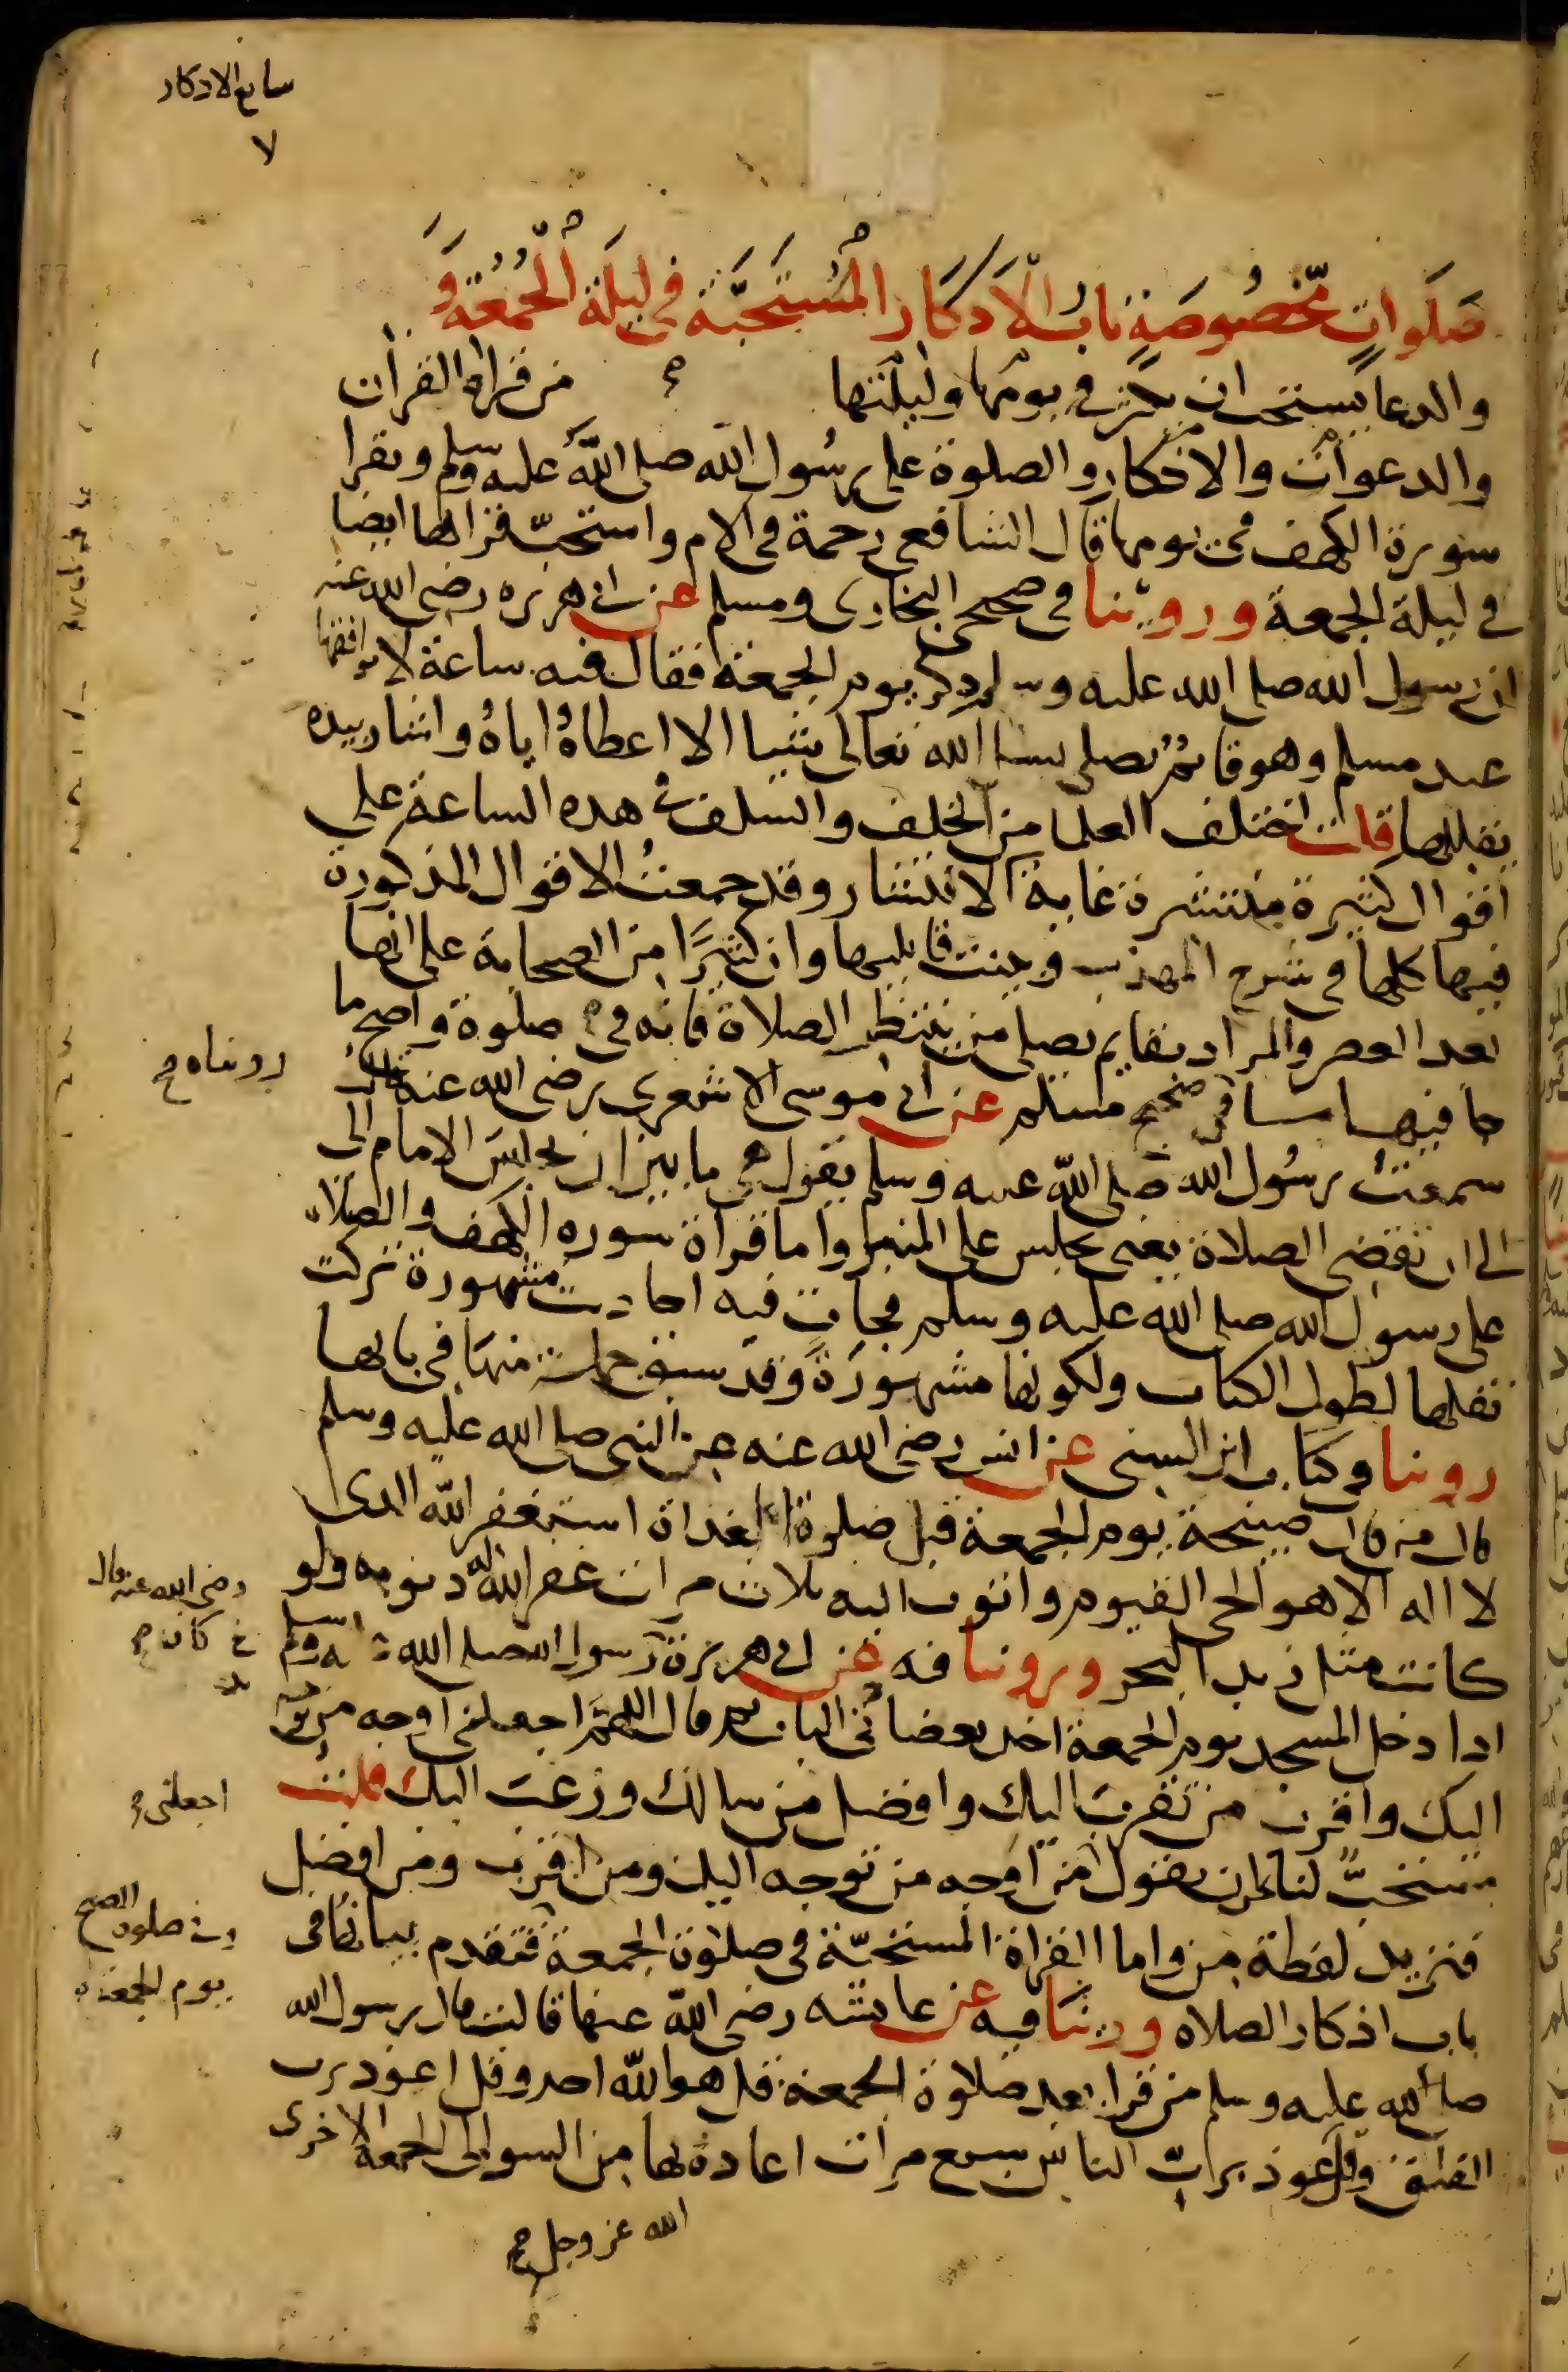 سابع الاذكار
٧
صَلَوات مخصُوصَةٍ بابُ الأذكار المُستَحبَّة في ليلَة الجُمُعَة وَ
والدعا يستحب ان يكثر في يومها وليلتها من قراة القرآن
والدعوات والاذكار والصلوة على رسول الله صلى الله عليه وسلم ويقرا
سورة الكهف في يومها قال الشافعي رحمة في الام واستحبّ قراتها ايضا
في ليلة الجمعة وروينا في صحيحي البخاري ومسلم عن ابي هريره رضي الله عنه
ان رسول الله صلى الله عليه وسلم ذكر يوم الجمعة فقال فيه ساعة لا يوافقها
عبد مسلم وهو قائم يصلي يسال الله تعالى شيا الا اعطاهُ اياهُ واشار بيده
يقللها قلت اختلف العلما من الخلف والسلف في هذه الساعة على
اقوال كثيرة منتشرة غاية الانتشار وقد جمعتُ الاقوال المذكورة
فيها كلها في شرح المهذب وبينت قايليها وان كثيرًا من الصحابة على انها
بعد العصر والمراد بقايم يصلي من ينتظر الصلاة فانه في صلوة واصح ما
جا فيها ما في صحيح مسلم عن ابي موسى الاشعري رضي الله عنه قال
رويناه في
سمعتُ رسُول الله صلى الله عليه وسلم يقول هي ما بين ان يجلس الامام الى
الى ان تقضى الصلاة يعني يجلس على المنبر واما قراة سورة الكهف والصلاة
على رسول الله صلى الله عليه وسلم فجات فيه احاديث مشهورة تركت
نقلها لطول الكتاب ولكونها مشهورَةً وقد سبق جملة منها في بابها
روينا في كتاب ابن السني عن انس رضي الله عنه عن النبي صلى الله عليه وسلم
قال من قال صبيحة يوم الجمعة قبل صلوة الغداة استغفر الله الذي
لا اله الا هو الحي القيوم واتوب اليه ثلاث مرات غفر الله له ذنوبه ولو
رضي الله عنه قال
كانت مثل زبد البحر وروينا فيه عن ابي هريرة رسول الله صلى الله عليه وسلم
كان
اذا دخل المسجد يوم الجمعة اخذ بعضادتي الباب ثم قال اللهمّ اجعلني اوجه من توجه
اليك واقرب من تقرب اليك وافضل من سالك ورغب اليك قلت
اجعلني
يستحبّ لنا نحن ان يقول من اوجه من توجه اليك ومن اقرب ومن افضل
فنزيد لفظة من واما القراة المستحبّة في صلوة الجمعة فتقدم بيانها في
وفي صلوة الصبح
يوم الجمعة
باب اذكار الصلاه وروينا فيه عن عايشه رضي الله عنها قالت قال رسول الله
صلى الله عليه وسلم من قرا بعد صلاوة الجمعة قل هو الله احد وقل اعوذ برب
الفلق وقل اعوذ بربّ الناس سبع مرات اعاذه بها من السوء الى الجمعة الاخرى
الله عز وجل